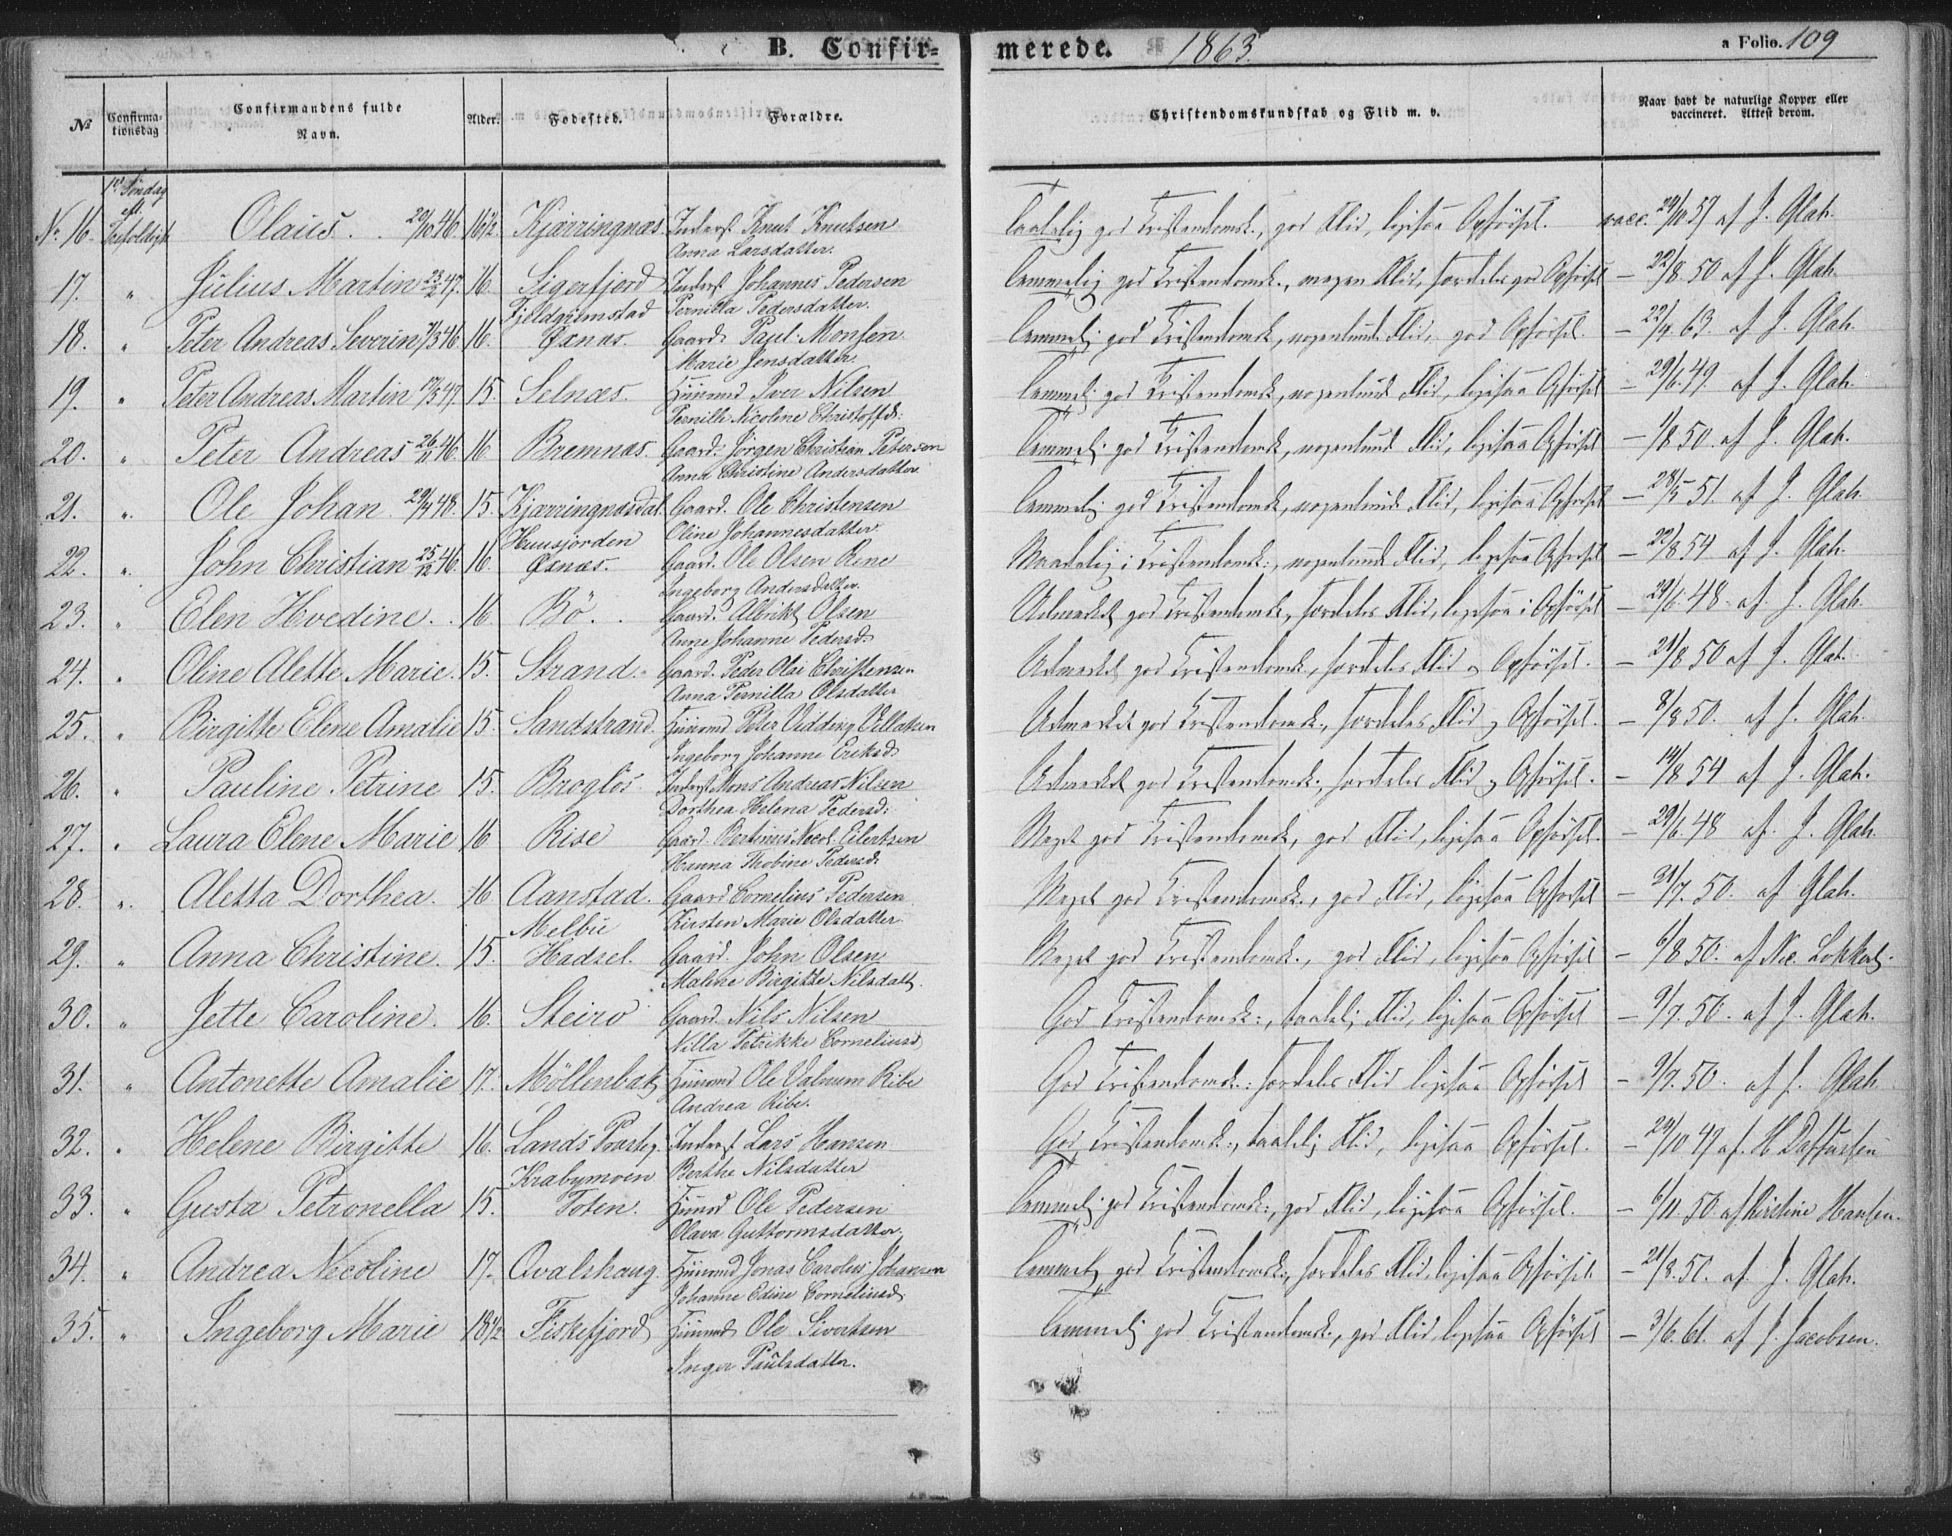 B. Confir-
merede. 1863.
a Folio. 109
No
Confirma-
tionsdag
Confirmandens fulde
Navn.
Alder.
Fødested.
Forældre.
Christendomskundskab og Flid m. v.
Naar havt de naturlige Kopper eller
vaccineret. Attest derom.
1ste Søndag
eft.
No 16. Trefoldigh. Olaus. 29/10 46. 16 1/2 Kjærringnæs. Inderst Knut Knutsen
Anna Larsdatter.
Taalelig god Kristendomsk., god Flid, ligesaa Opførsel. vacc. 24/10 57 af J. Glah.
17. " Julius Martin 23/2 47. 16. Sigerfjord Inderst Johannes Pedersen
Pernilla Pedersdatter.
Temmelig god Kristendomsk., megen Flid, særdeles god Opførsel – 22/8 50 af J. Glah.
18. " Peter Andreas Severin 7/3 46 16. Fjeldgrimstad
Øxnæs. Gaard. Paul Monsen
Marie Jensdatter.
Temmelig god Kristendomsk., nogenlunde Flid, god Opførsel. – 22/4 63. af J. Glah.
19. " Peter Andreas Martin 17/5 47. 15. Selnæs. Huusmd Iver Nilsen
Pernille Nicoline Christoffd:
Temmelig god Kristendomsk., nogenlunde Flid, ligesaa Opførsel – 29/6 49 af J. Glah.
20. " Peter Andreas 26/11 46. 16 Bremnæs. Gaard: Jørgen Christian Petersen
Anna Christine Andersdatter.
Temmelig god Kristendomsk., nogenlunde Flid, ligesaa Opførsel – 1/8 50. af J. Glah.
21. " Ole Johan 29/4 48. 15. Kjærringnæsdal. Gaard. Ole Christensen
Oline Johannesdatter.
Temmelig god Kristendomsk., nogenlunde Flid, ligesaa Opførsel – 28/5 51. af J. Glah.
22. " John Christian 25/12 46. 16. Huusjorden
Øxnæs. Gaard. Ole Olsen Rene
Ingeborg Andersdatter.
Maadelig i Kristendomsk:, nogenlunde Flid, ligesaa Opførsel – 22/8 54 af J. Glah.
23. " Elen Hvedine. 16. Bö. Gaard. Albrikt Olsen
Anne Johanne Pedersd:
Udmærket god Kristendomsk., særdeles Flid, ligesaa i Opførsel – 29/6. 48. af. J. Glah.
24. " Oline Alette Marie. 15. Strand. Gaard. Peder Olai Christensen
Anna Pernilla Olsdatter
Udmærket god Kristendomsk., særdeles Flid og Opførsel. – 21/8 50 af J. Glah.
25. " Birgitte Elene Amalie 15. Sandstrand. Huusmd Peter Vidding Villatsen
Ingeborg Johanne Eriksd.
Udmærket god Kristendomsk., særdeles Flid og Opførsel. – 8/8 50. af J. Glah.
26. " Pauline Petrine 15. Broglös. Inderst Mons Andreas Nilsen
Dorthea Helena Pedersd:
Udmærket god Kristendomsk., særdeles Flid og Opførsel. – 14/8 54 af J. Glah.
27. " Laura Elene Marie 16 Rise Gaard. Bertinus Nicol. Eilertsen
Hanna Thobine Pedersd.
Meget god Kristendomsk., god Flid, ligesaa Opførsel. – 29/6. 48 af. J. Glah.
28. " Aletta Dorthea. 16 Aanstad. Gaard Cornelius Pedersen
Kirsten Marie Olsdatter
Meget god Kristendomsk., god Flid, ligesaa Opførsel – 21/7. 50. af Glah.
29. " Anna Christine. 15. Melbu
Hadsel. Gaard. John Olsen
Maline Birgitte Nilsdatt.
Meget god Kristendomsk., god Flid, ligesaa Opførsel – 6/8 50. af Nic. Lokkert.
30. " Jette Caroline. 16. Steiro Gaard. Nils Nilsen
Nilla Petrikke Corneliusd
God Kristendomsk:, taalelig Flid, ligesaa Opførsel – 9/7. 50. af J. Glah.
31. " Antonette Amalie 17. Möllenbak Huusmd Ole Valnum Ribe
Andrea Ribe.
God Kristendomsk: særdeles Flid ligesaa Opførsel – 9/7. 50. af J. Glah
32. " Helene Birgitte 16. Lands Præsteg. Inderst Lars Hansen
Berthe Nilsdatter
God Kristendomsk., taalelig Flid, ligesaa Opførsel. – 24/10 49 af. H
33. " Gusta Petronella 15. Krabymoen
Toten. Huusmd Ole Pedersen
Olava Guttormsdatter
Temmelig god Kristendomsk:, god Flid, ligesaa Opførsel. – 6/11. 50. af Kirstine Hansen.
34. " Andrea Nicoline 17. Qvalshaug. Huusmd Jonas Carolus Johansen
Johanne Edine Corneliusd
Temmelig god Kristendomsk., særdeles Flid, ligesaa Opførsel. – 21/8. 50. af J. Glah.
35. " Ingeborg Marie 18 1/2 Fiskefjord Huusmd Ole Sivertsen
Inger Paulsdatter.
Temmelig god Kristendomsk., god Flid, ligesaa Opførsel – 3/6. 61. af J. Jacobsen.